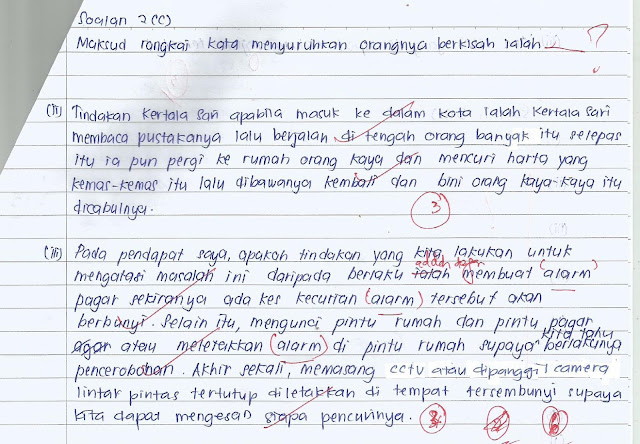 Soalan 2(c)
Maksud rangkai kata menyuruhkan orangnya berkisah ialah ?
(ii) Tindakan Kertala Sari apabila masuk ke dalam kota ialah Kertala Sari
membaca pustakanya lalu berjalan di tengah orang banyak itu selepas
itu ia pun pergi ke rumah orang kaya dan mencuri harta yang
kemas-kemas itu lalu dibawanya kembali dan bini orang kaya-kaya itu
dicabulnya.
3
(iii) Pada pendapat saya, apakah tindakan yang kita lakukan untuk
mengatasi masalah ini daripada berlaku ialah adalah membuat (alarm)
pagar sekiranya ada kes kecurian (alarm) tersebut akan
berbunyi. Selain itu, mengunci pintu rumah dan pintu pagar
agar atau meletakkan (alarm) di pintu rumah supaya kita tahu berlakunya
pencerobohan. Akhir sekali, memasang cctv atau dipanggil camera
lintar pintas tertutup diletakkan di tempat tersembunyi supaya
kita dapat mengesan siapa pencurinya.